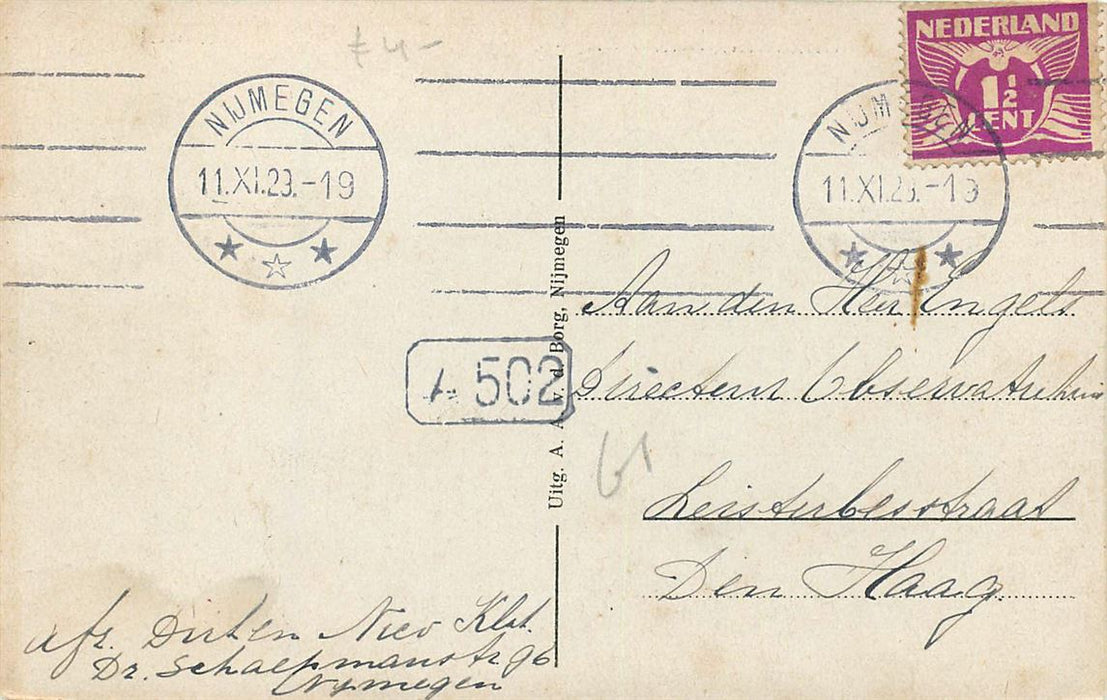 £ 4-
NEDERLAND
1½
CENT
NIJMEGEN
11.XI.23.-19
NIJMEGEN
11.XI.23.-19
Uitg. A. A. v. d. Borg, Nijmegen
A 502
Aan den Heer Engels
Directeur Observatiehuis
61
Leisterbesstraat
Den Haag
afz. Dirken Nico
Dr. Schaepmanstr 96
Nymegen